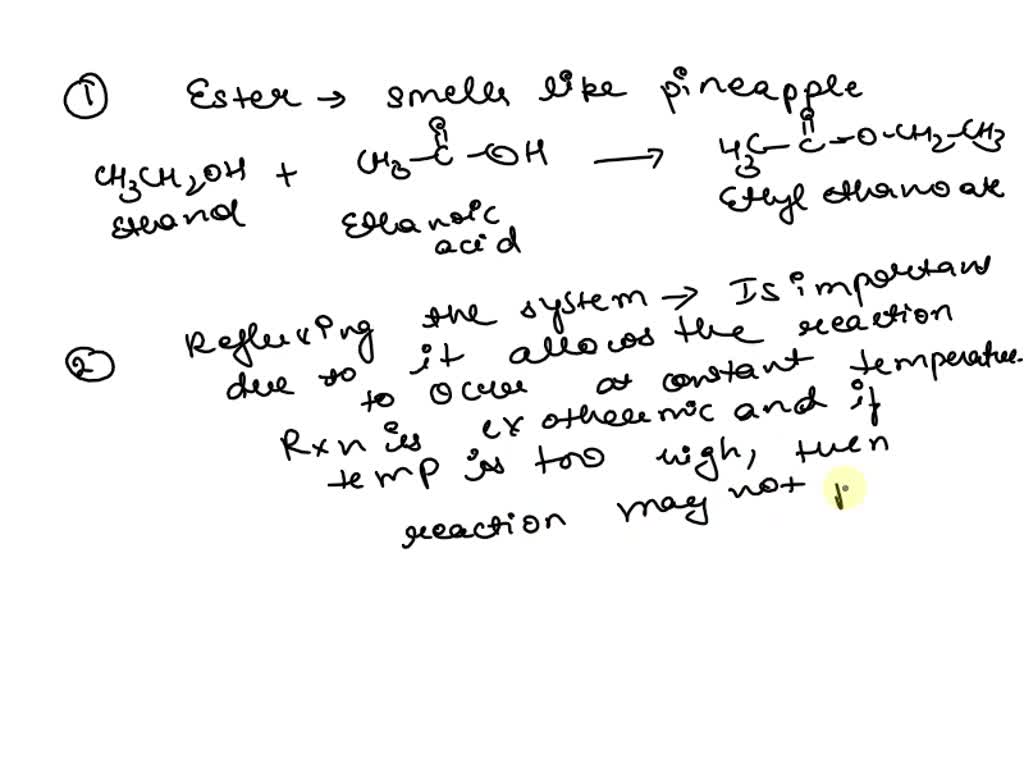 ① Ester → smells like pineapple
CH3CH2OH + CH3-C(=O)-OH → H3C-C(=O)-O-CH2-CH3
Ethanol Ethanoic acid Ethyl ethanoate
② Refluxing the system → Is important
due to it allows the reaction
to occur at constant temperature.
Rxn is exothermic and if
temp is too high, then
reaction may not